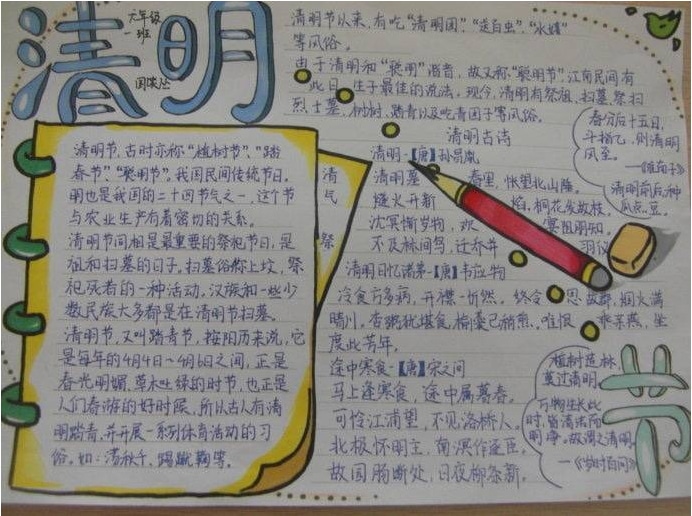 清明
六年级
一班
清明节,古时亦称“植树节”、“踏
春节”、“聪明节”,我国民间传统节日。
明也是我国的二十四节气之一,这个节
与农业生产有着密切的关系。
清明节同祖是最重要的祭祀节日,是
祖和扫墓的日子。扫墓俗称上坟,祭
祀死者的一种活动,汉族和一些少
数民族大多都是在清明节扫墓。
清明节,又叫踏青节,按阳历来说,它
是每年的4月4日~4月6日之间,正是
春光明媚,草木吐绿的时节,也正是
人们春游的好时候,所以古人有清
明踏青,并开展一系列体育活动的习
俗。如:荡秋千、蹴鞠等。
清
民
祭
清明节以来,有吃“清明团”、“送百虫”、
等风俗。
由于清明和“聪明”谐音,故又称“聪明节”,江南民间有
此日 生子最佳的说法。现今,清明有祭祖、扫墓、祭扫
烈士墓、植树、踏青以及吃青团子等风俗。
清明古诗
清明-【唐】孙昌胤
清明暮 春里,怅望北山陲。
燧火开新 焰,桐花发故枝。
沈冥惭岁物,欢 宴阻朋知。
不及林间鸟,迁乔并 羽仪
清明日忆诸弟-【唐】韦应物
冷食方多病,开襟一忻然。终令 思故郡,烟火满
晴川。杏粥犹堪食,榆羹已稍煎。唯恨 乖亲燕,坐
度此芳年。
途中寒食-【唐】宋之问
马上逢寒食,途中属暮春。
可怜江浦望,不见洛桥人。
北极怀明主,南溟作逐臣。
故园肠断处,日夜柳条新。
春分后十五日,
斗指乙,则清明
风至。
—《淮南子》
清明前后种
瓜点豆。
植树造林,
莫过清明。
万物生长此
时,皆清洁而
明净。故谓之清明。
—《岁时百问》
节